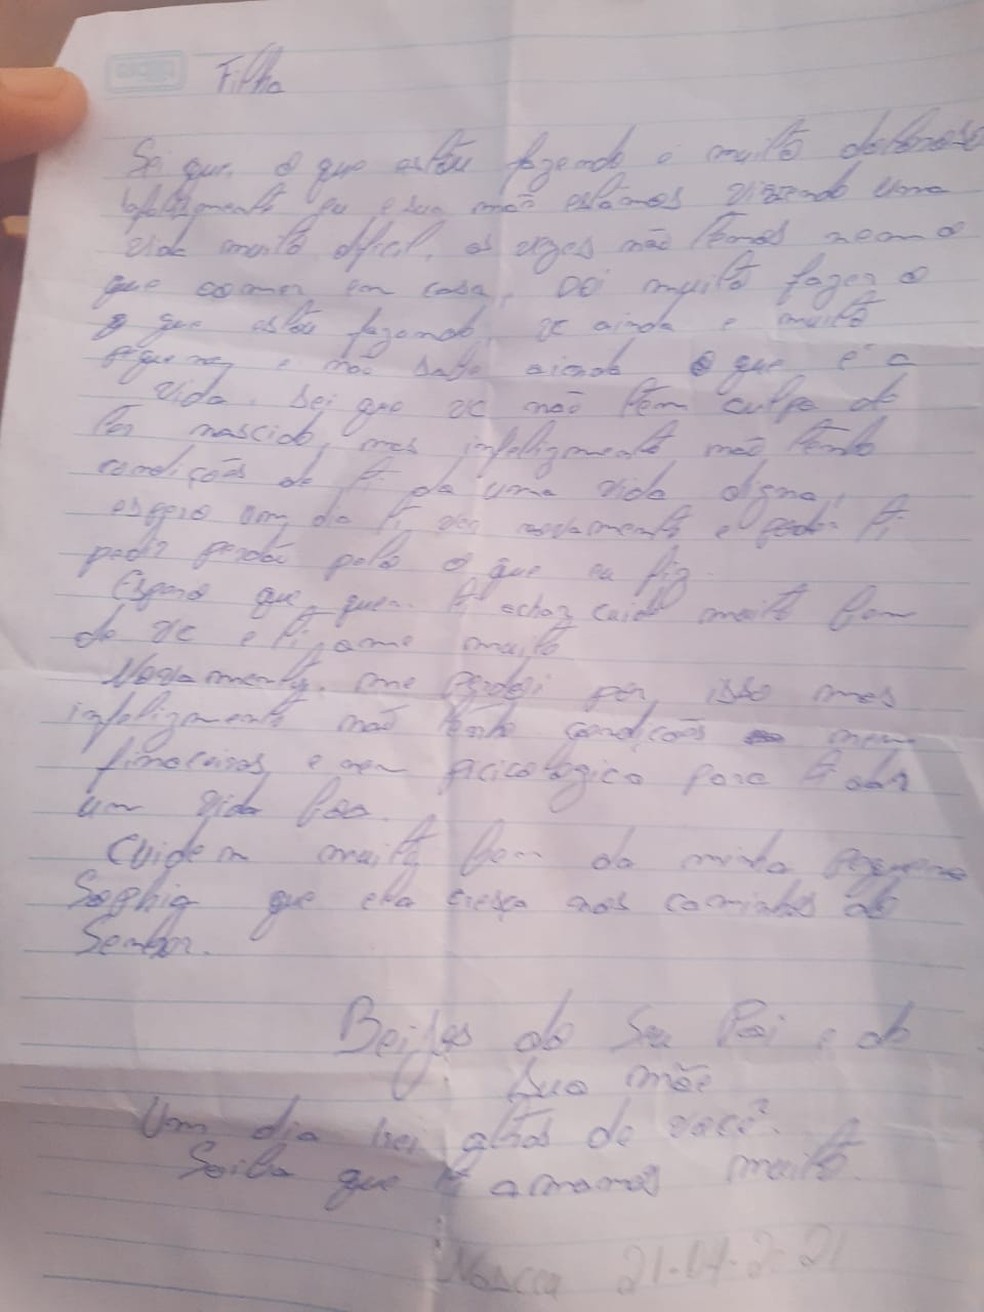 Filha
Sei que o que estou fazendo e muito doloroso
Infelizmente eu e sua mãe estamos vivendo uma
vida muito dificil, as vezes não temos nem o
que comer em casa, Dói muito fazer o
que estou fazendo, vc ainda e muito
pequena e não sabe ainda o que é a
vida. Sei que vc não tem culpa de
ter nascido, mas infelizmente não tenho
condições de ti da uma vida digna,
espero um dia ti ver novamente e ti
pedir perdão pelo o que eu fiz.
Espero que quem ti achar cuide muito bem
de vc e ti ame muito
Novamente, me perdoi por isso mas
infelizmente não tenho condições nem
finaceiras e nem picicologica para ti dar
um vida boa.
Cuidem muito bem da minha pequena
Sophia que ela cresça nos caminhos do
Senhor.
Beijos do Seu Pai e da
Sua mãe
Um dia irei atras de você.
Saiba que ti amamos muito.
21.04.2021